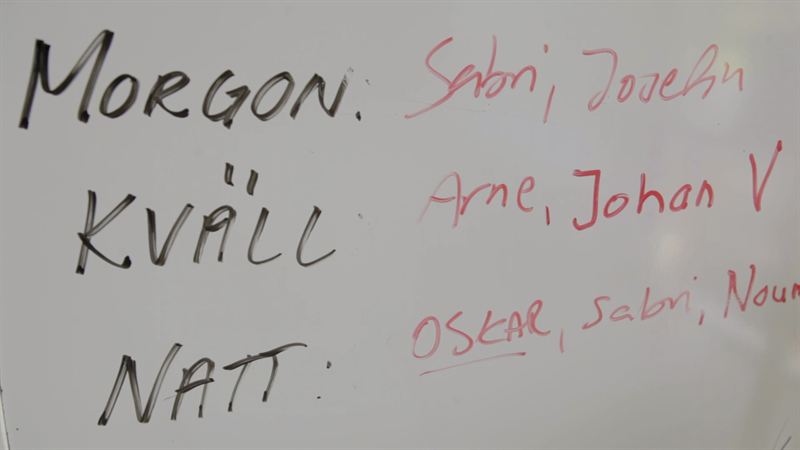 MORGON: Sabri, Josefin
KVÄLL: Arne, Johan V
NATT: OSKAR, Sabri,